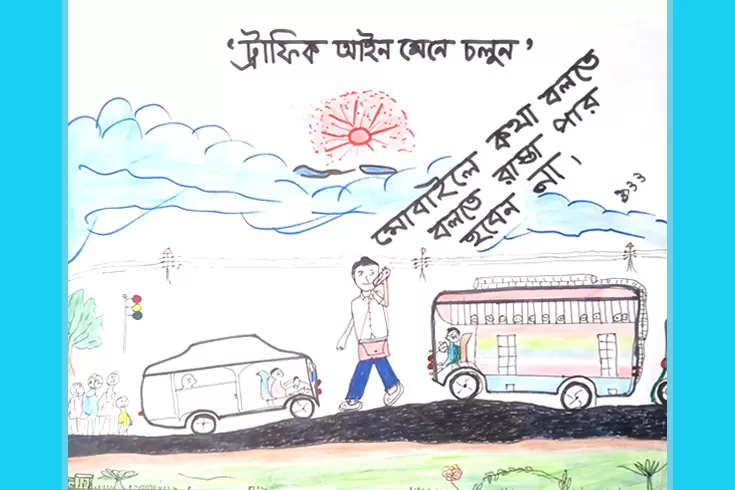 ‘ট্রাফিক আইন মেনে চলুন’
মোবাইলে কথা বলতে
বলতে রাস্তা পার
হবেন না।